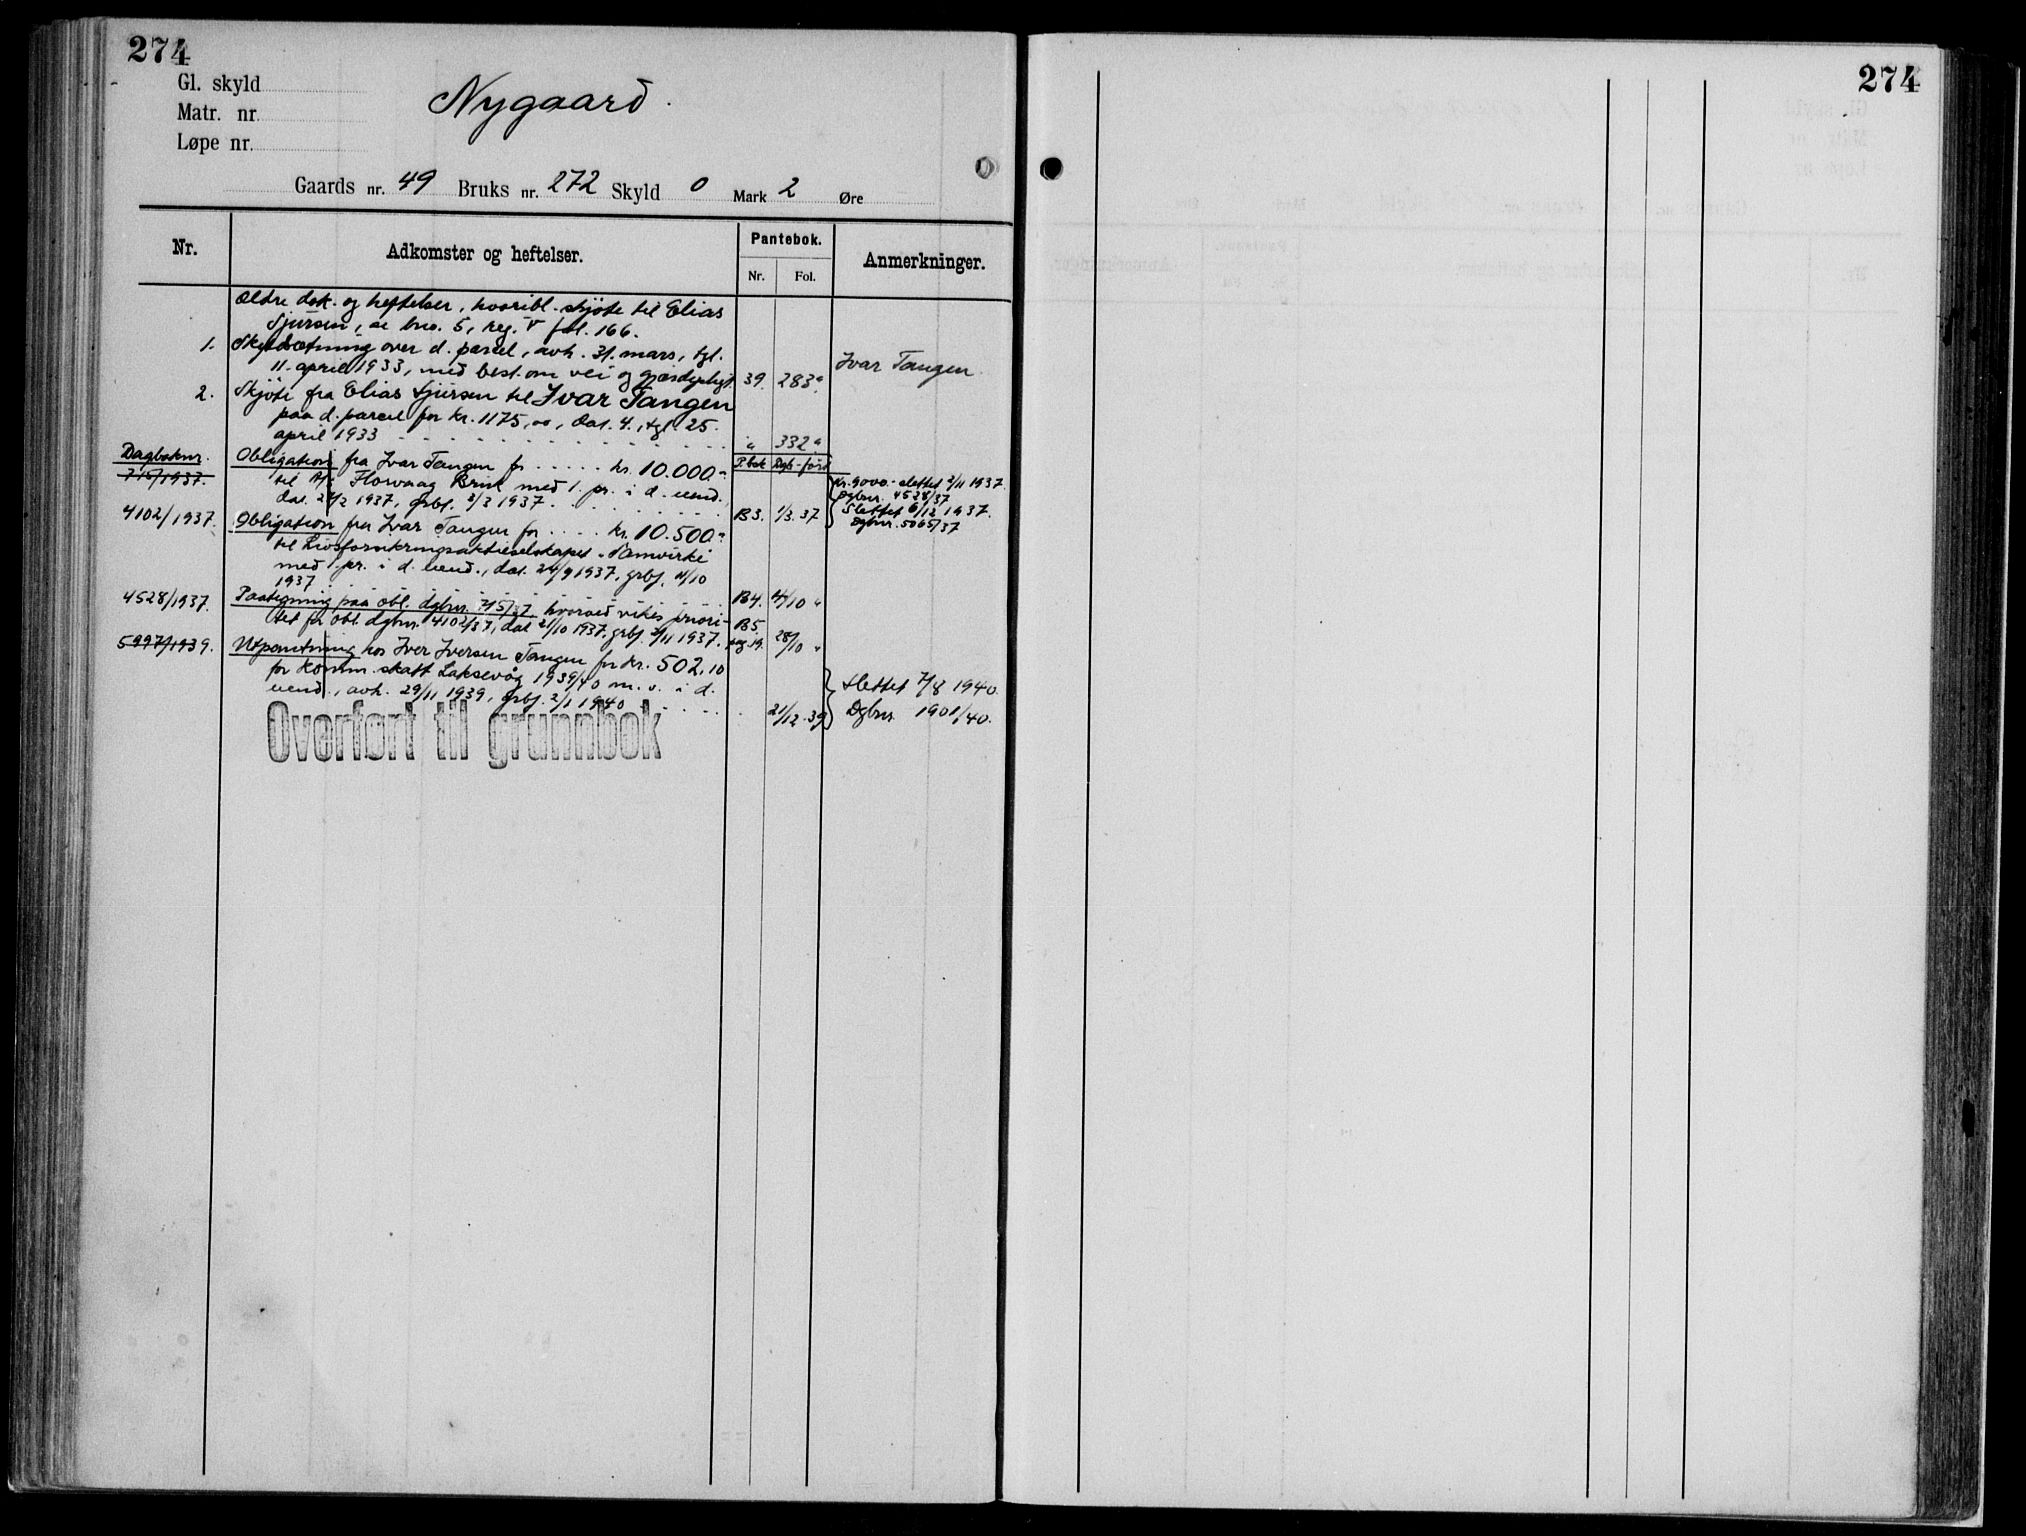 274
274
Gl. skyld
Matr. nr.
Løpe nr.
Nygaard.
Gaards nr. 49 Bruks nr. 272 Skyld 0 Mark 2 Øre
Nr.
Adkomster og heftelser.
Pantebok.
Nr. Fol.
Anmerkninger.
Ældre dok. og heftelser, hvoribl. skjøte til Elias
Sjursen, se bno. 5, reg. V fol. 166.
1. Skyldsætning over d. parcel, avh. 31. mars, tgl.
11. april 1933, med best. om vei og gjærdepligt. 39. 283a
Ivar Tangen.
2. Skjøte fra Elias Sjursen til Ivar Tangen
paa d. parcel for kr. 1175,00, dat. 4., tgl. 25.
april 1933 " 332a
Dagboknr. P.bok Dgb-ført
715/1937. Obligation fra Ivar Tangen for kr. 10.000.-
til A/S Florvaag Bruk med 1. pr. i d. eiend.,
dat. 27/2 1937, grbf. 2/3 1937. B3. 1/3.37
Kr. 9000.- slettet 2/11 1937.
Dgbnr. 4528/37
Slettet 6/12 1937.
Dgbnr. 5065/37
4102/1937. Obligation fra Ivar Tangen for kr. 10.500.-
til Livsforsikringsaktieselskapet Samvirke
med 1. pr. i d. eiend., dat. 24/9 1937, grbf. 11/10
1937 B4.
4528/1937. Paategning paa obl. dgbnr. 715/37, hvorved vikes priori-
tet for obl. dgbnr. 4102/37, dat. 21/10 1937, grbf. 2/11 1937. B5 28/10 "
5997/1939. Utpantning hos Iver Iversen Tangen for kr. 502,10
for komm. skatt Laksevåg 1939/40 m. v. i d.
eiend., avh. 29/11 1939, grbf. 2/1 1940 21/12.39
Slettet 7/8 1940.
Dgbnr. 1901/40.
Overført til grunnbok